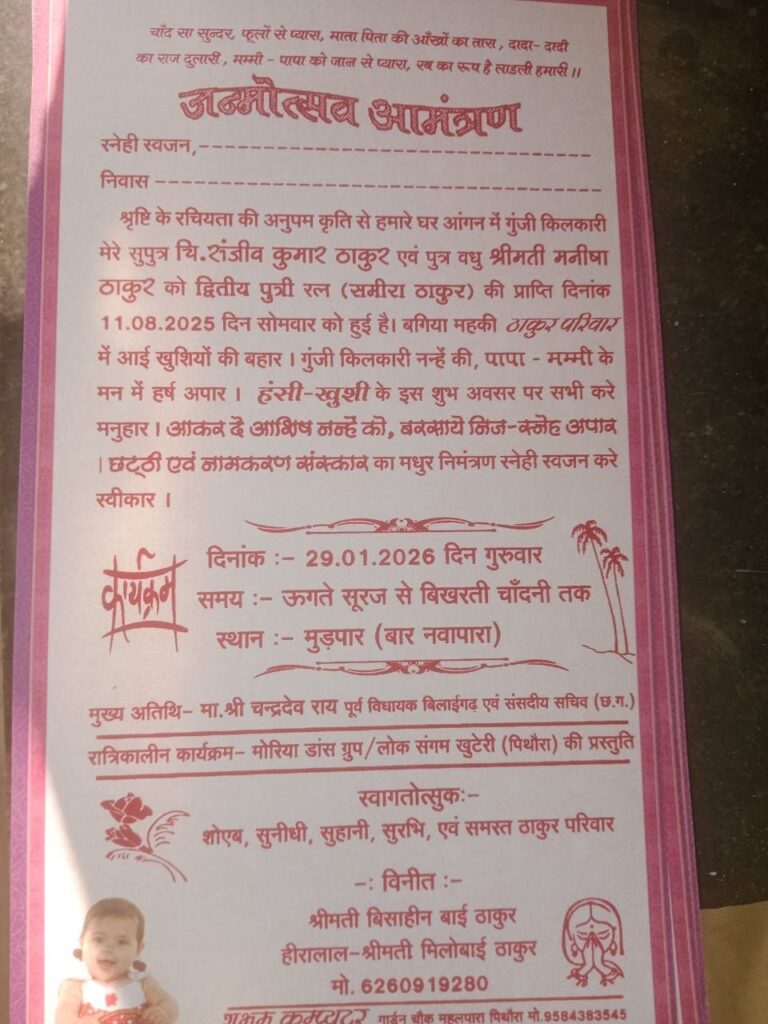 चाँद सा सुन्दर, फूलों से प्यारा, माता पिता की आँखों का तारा , दादा- दादी
का राज दुलारी , मम्मी - पापा को जान से प्यारा, रब का रूप है लाडली हमारी ॥
जन्मोत्सव आमंत्रण
स्नेही स्वजन,------------------------------
निवास ----------------------------------
श्रृष्टि के रचियता की अनुपम कृति से हमारे घर आंगन में गुंजी किलकारी
मेरे सुपुत्र चि.संजीव कुमार ठाकुर एवं पुत्र वधु श्रीमती मनीषा
ठाकुर को द्वितीय पुत्री रत्न (समीरा ठाकुर) की प्राप्ति दिनांक
11.08.2025 दिन सोमवार को हुई है। बगिया महकी ठाकुर परिवार
में आई खुशियों की बहार । गुंजी किलकारी नन्हें की, पापा - मम्मी के
मन में हर्ष अपार । हंसी-खुशी के इस शुभ अवसर पर सभी करे
मनुहार । आकर दै आशिष नन्हें को, बरसाये निज-स्नेह अपार
। छट्ठी एवं नामकरण संस्कार का मधुर निमंत्रण स्नेही स्वजन करे
स्वीकार ।
कार्यक्रम
दिनांक :- 29.01.2026 दिन गुरुवार
समय :- ऊगते सूरज से बिखरती चाँदनी तक
स्थान :- मुड़पार (बार नवापारा)
मुख्य अतिथि- मा.श्री चन्द्रदेव राय पूर्व विधायक बिलाईगढ़ एवं संसदीय सचिव (छ.ग.)
रात्रिकालीन कार्यक्रम- मोरिया डांस ग्रुप/लोक संगम खुटेरी (पिथौरा) की प्रस्तुति
स्वागतोत्सुक:-
शोएब, सुनीधी, सुहानी, सुरभि, एवं समस्त ठाकुर परिवार
-: विनीत :-
श्रीमती बिसाहीन बाई ठाकुर
हीरालाल-श्रीमती मिलोबाई ठाकुर
मो. 6260919280
कम्प्यूटर गार्डन चौक महलपारा पिथौरा मो.9584383545